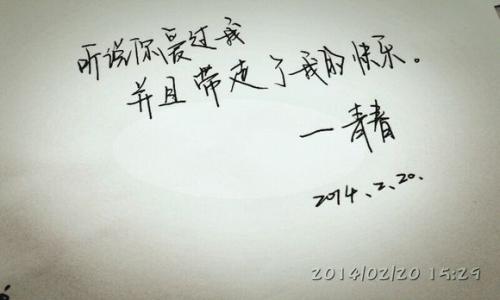 听说你爱过我
并且带走了我的快乐。
一青春
2014.2.20.
2014/02/20 15:29